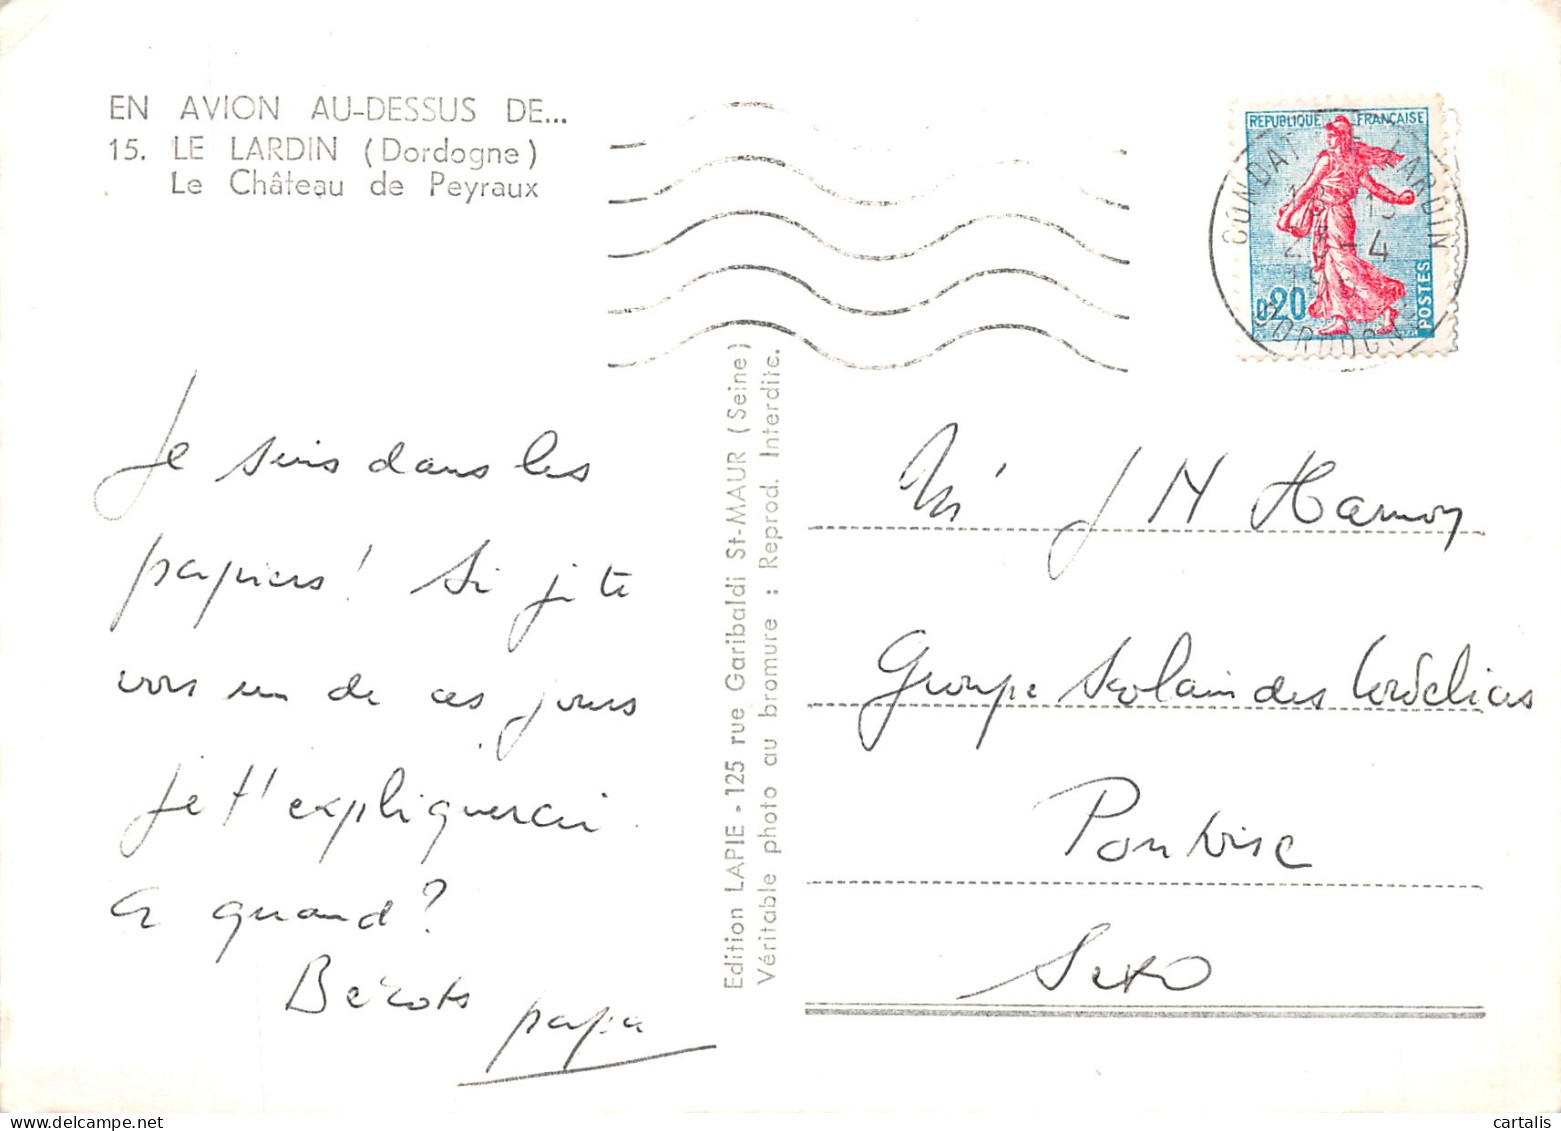 EN AVION AU-DESSUS DE...
15. LE LARDIN (Dordogne)
Le Château de Peyraux
REPUBLIQUE FRANÇAISE
0,20
POSTES
CONDAT LARDIN
18 15
23-4
DORDOGNE
Je suis dans les
papiers! Si je te
vois un de ces jours
je t'expliquerai.
A quand?
papa
Edition LAPIE - 125 rue Garibaldi St-MAUR (Seine)
Véritable photo au bromure : Reprod. Interdite.
Mr J M Hamon
Groupe Scolaire des Cordeliers
Pontoise
S et O
cartalis